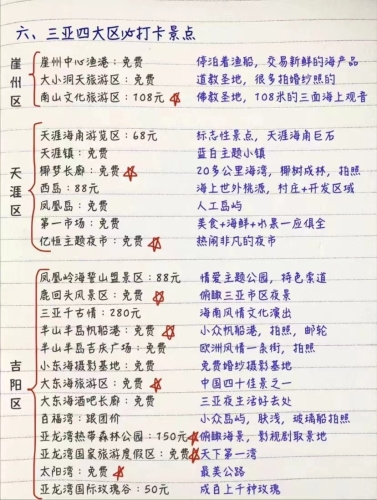 六、三亚四大区必打卡景点
崖州区
崖州中心渔港：免费 停泊着渔船，交易新鲜的海产品
大小洞天旅游区：免费 道教圣地，很多拍婚纱照的
南山文化旅游区：108元 佛教圣地、108米的三面海上观音
天涯区
天涯海南游览区：68元 标志性景点，天涯海南巨石
天涯镇：免费 蓝白主题小镇
椰梦长廊：免费 20多公里海湾，椰树成林，拍照
西岛：88元 海上世外桃源，村庄+开发区域
凤凰岛：免费 人工岛屿
第一市场：免费 美食+海鲜+水果一应俱全
亿恒主题夜市：免费 热闹非凡的夜市
吉阳区
凤凰岭海誓山盟景区：88元 情爱主题公园，特色索道
鹿回头风景区：免费 俯瞰三亚市区夜景
三亚千古情：280元 海南风情文化演出
半山半岛帆船港：免费 小众帆船港，拍照，邮轮
半山半岛吉庆广场：免费 欧洲风情一条街，拍照
小东海摄影基地：免费 免费婚纱摄影基地
大东海旅游区：免费 中国四十佳景之一
大东海酒吧长廊：免费 三亚夜生活好去处
百福湾：跟团价 小众岛屿，浮浅，玻璃船拍照
亚龙湾热带森林公园：150元 俯瞰海景，影视剧取景地
亚龙湾国家旅游度假区：免费 天下第一湾
太阳湾：免费 最美公路
亚龙湾国际玫瑰谷：50元 成百上千种玫瑰